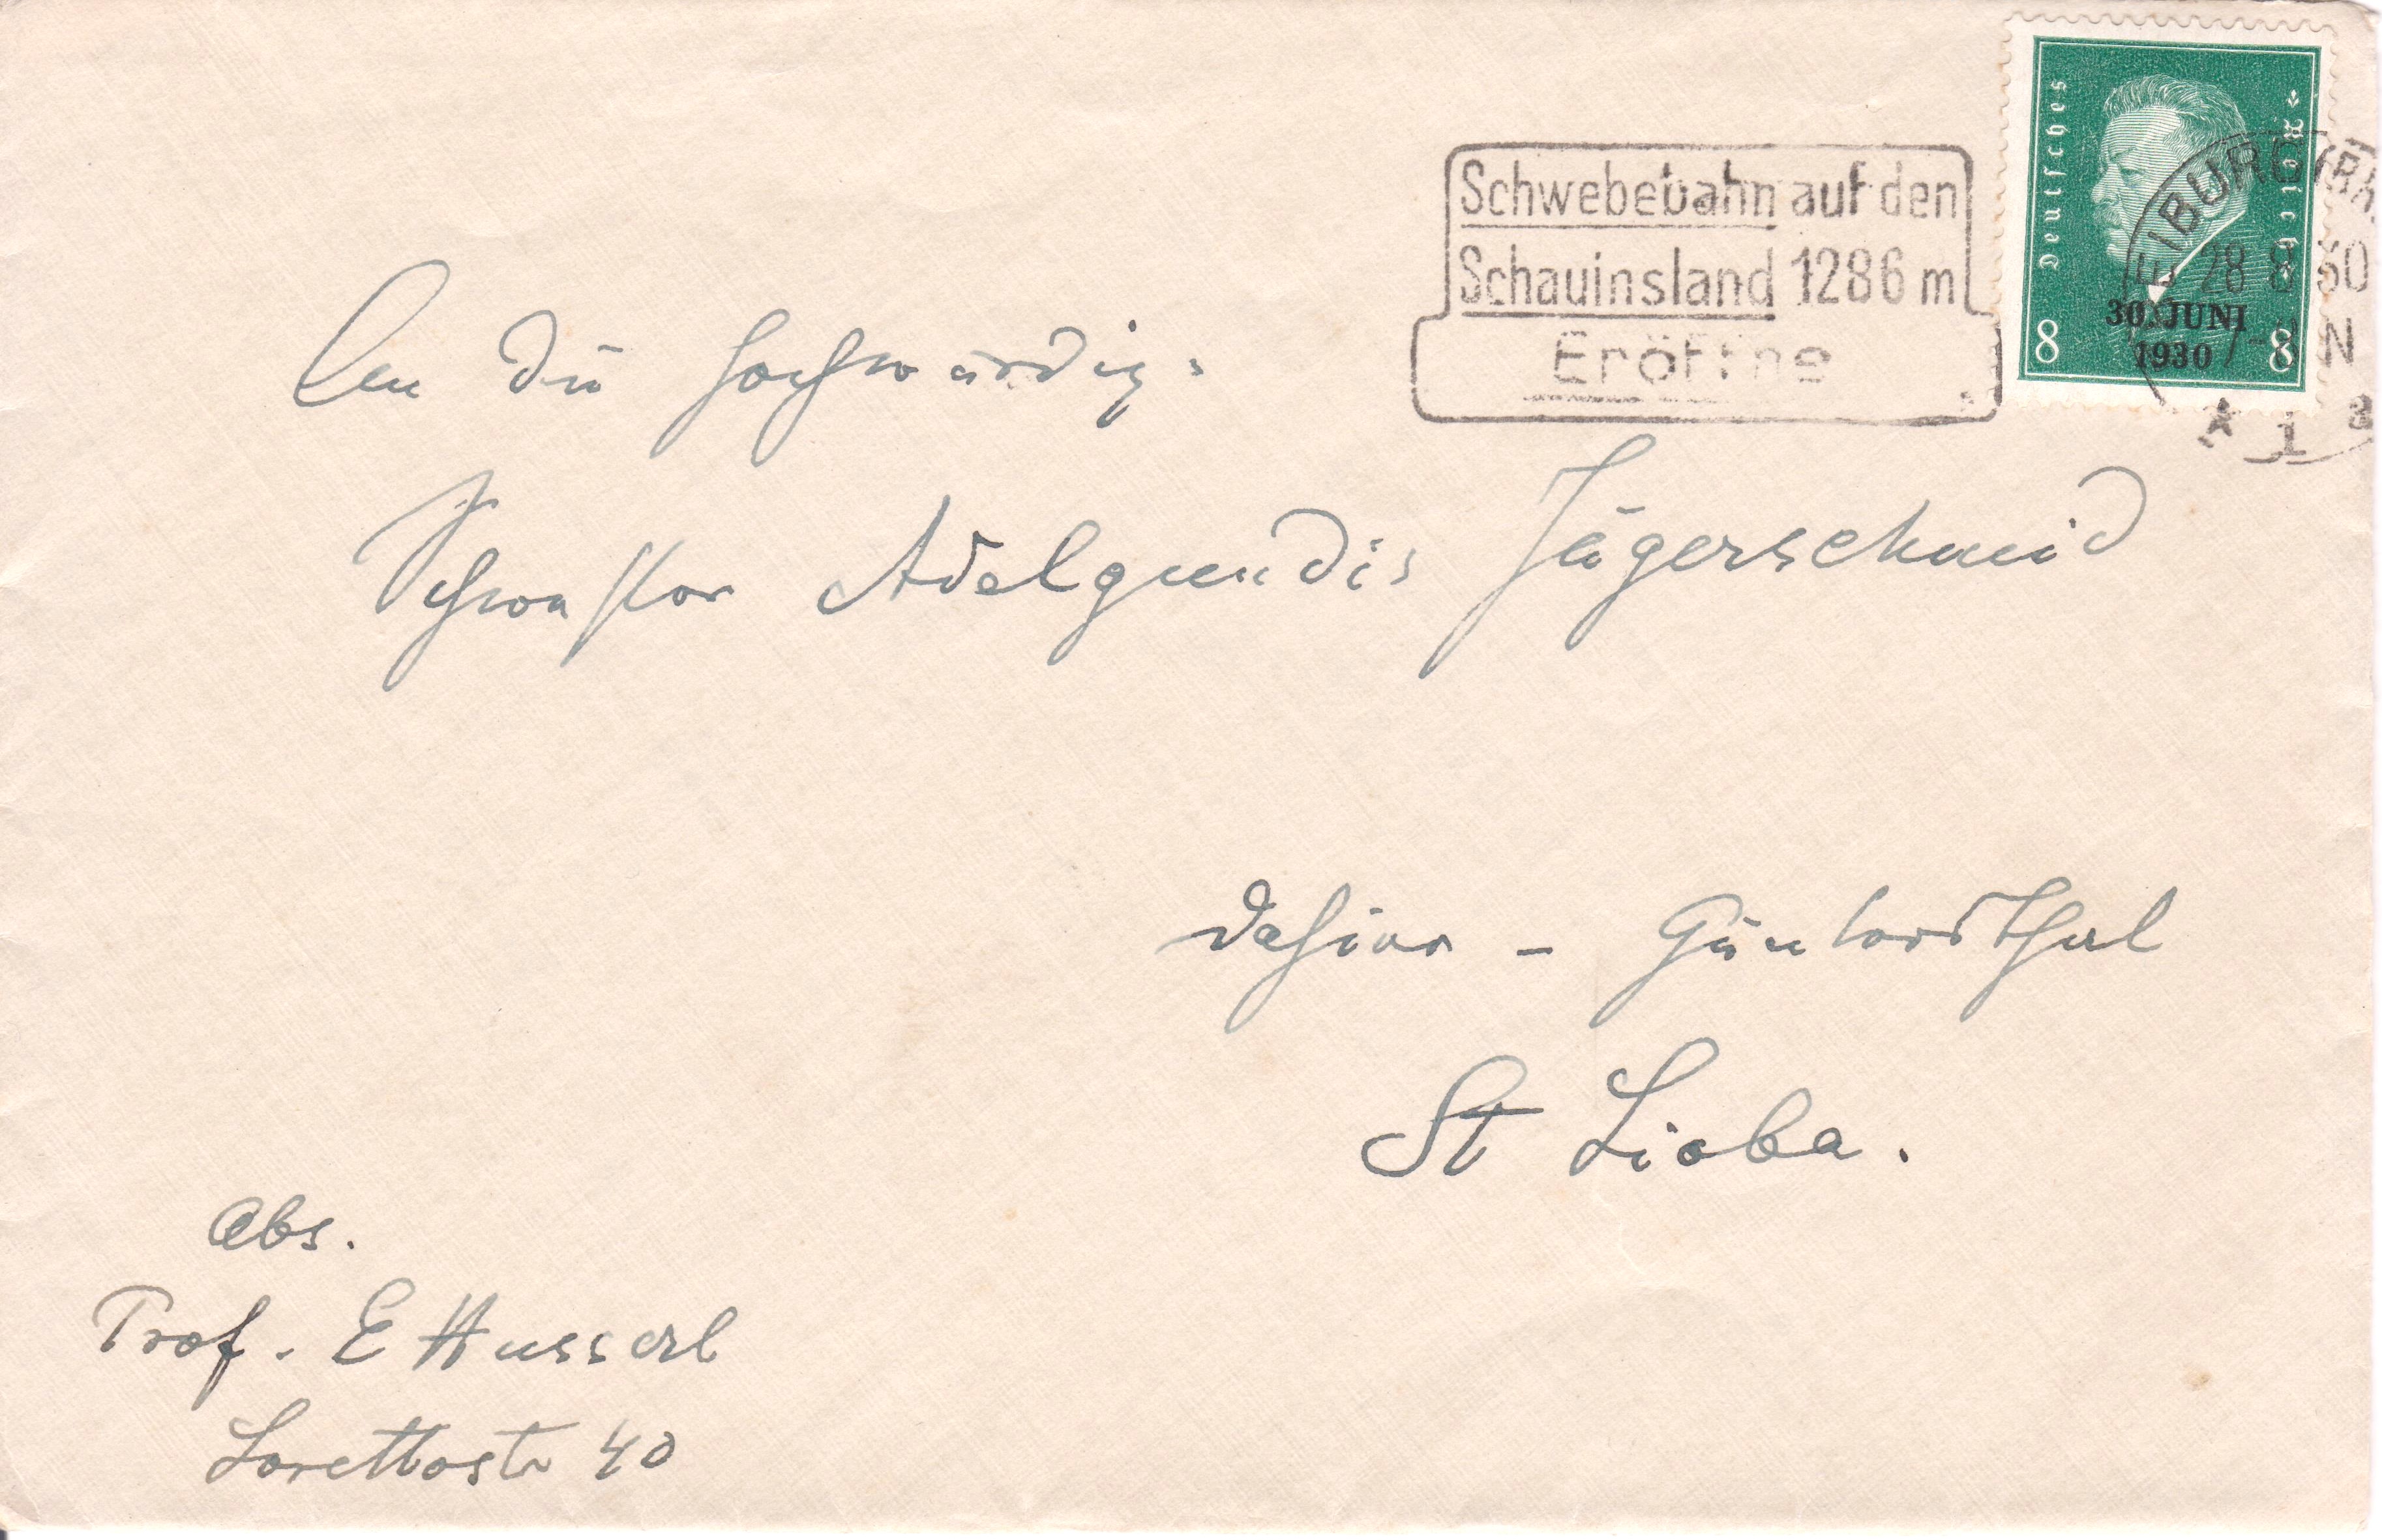 Schwebebahn auf den
Schauinsland 1286 m
Eröffne
Deutsches Reich
8 8
30. JUNI
1930
EIBURG (BR.
28 8 30
7- N
* 1 a
An die hochwürdige
Schwester Adelgundis Jägerschmid
dahier - Güntersthal
St Lioba.
Abs.
Prof. E Husserl
Lorettostr 40